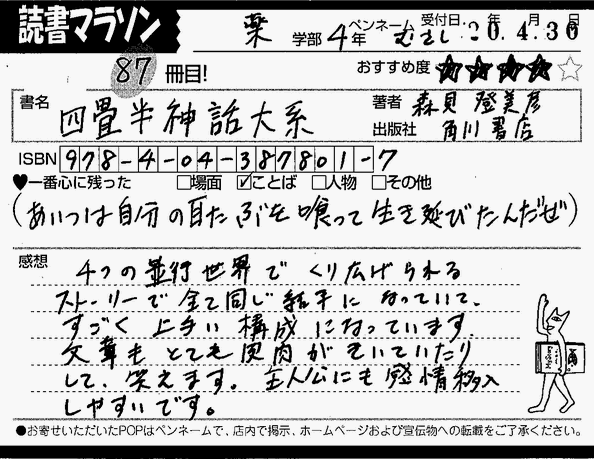 読書マラソン
薬 学部 4年 ペンネーム むさし 受付日: 20.4.30 年 月 日
87 冊目!
おすすめ度 ★★★★☆
書名 四畳半神話大系
著者 森見登美彦
出版社 角川書店
ISBN 978-4-04-387801-7
♥一番心に残った □場面 ☑ことば □人物 □その他
(あいつは自分の耳たぶを喰って生き延びたんだぜ)
感想
4つの並行世界でくり広げられる
ストーリーで全て同じ結末になっていて、
すごく上手い構成になっています。
文章もとても皮肉がきいていたり
して、笑えます。主人公にも感情移入
しやすいです。
●お寄せいただいたPOPはペンネームで、店内で掲示、ホームページおよび宣伝物への転載をご了承ください。